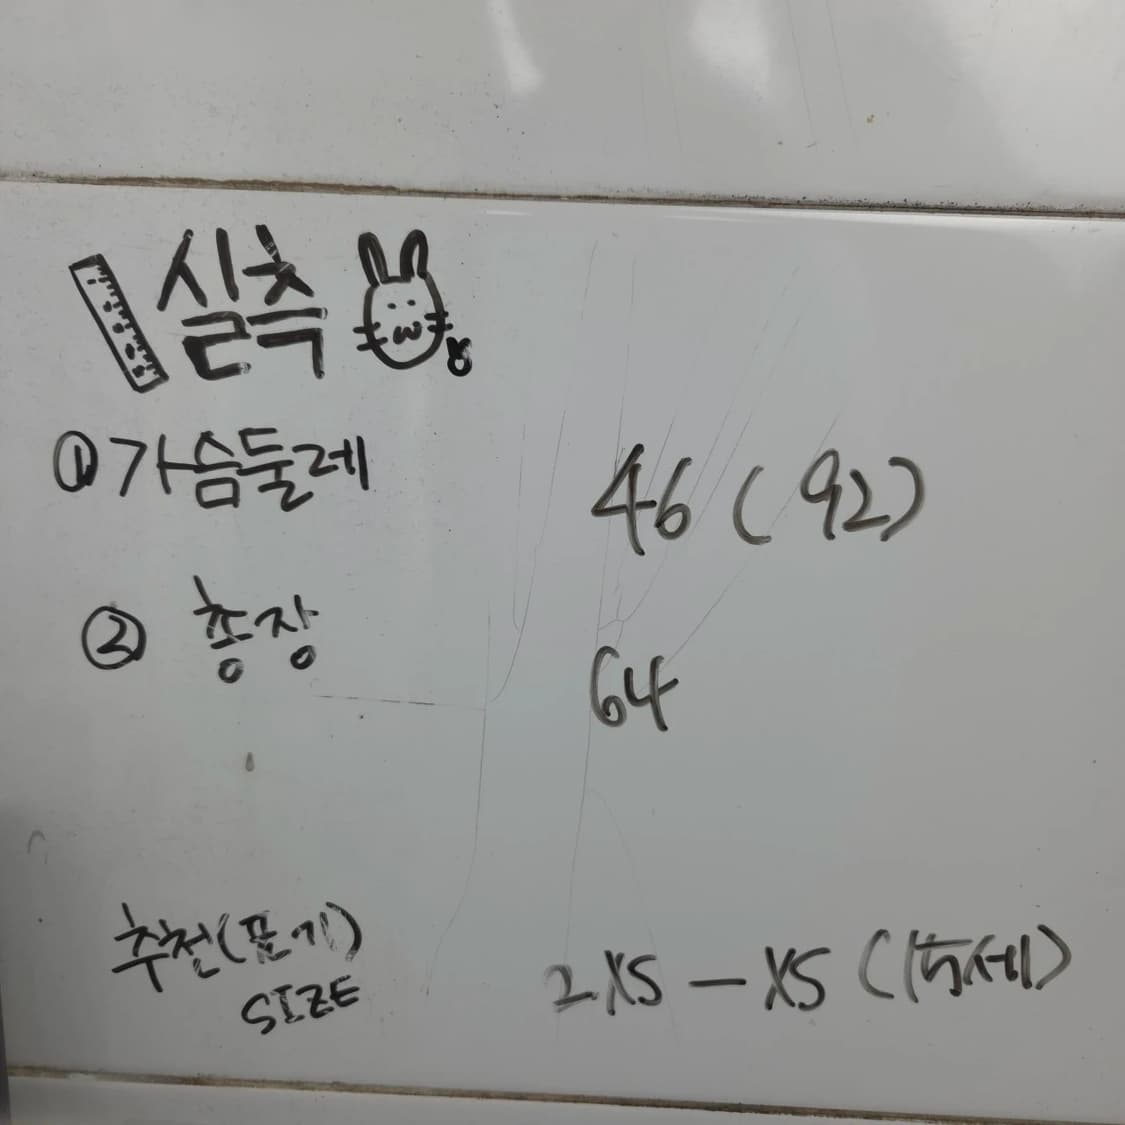 실측
① 가슴둘레 46 (92)
② 총장 64
추천(표기) 2XS - XS (15세)
SIZE